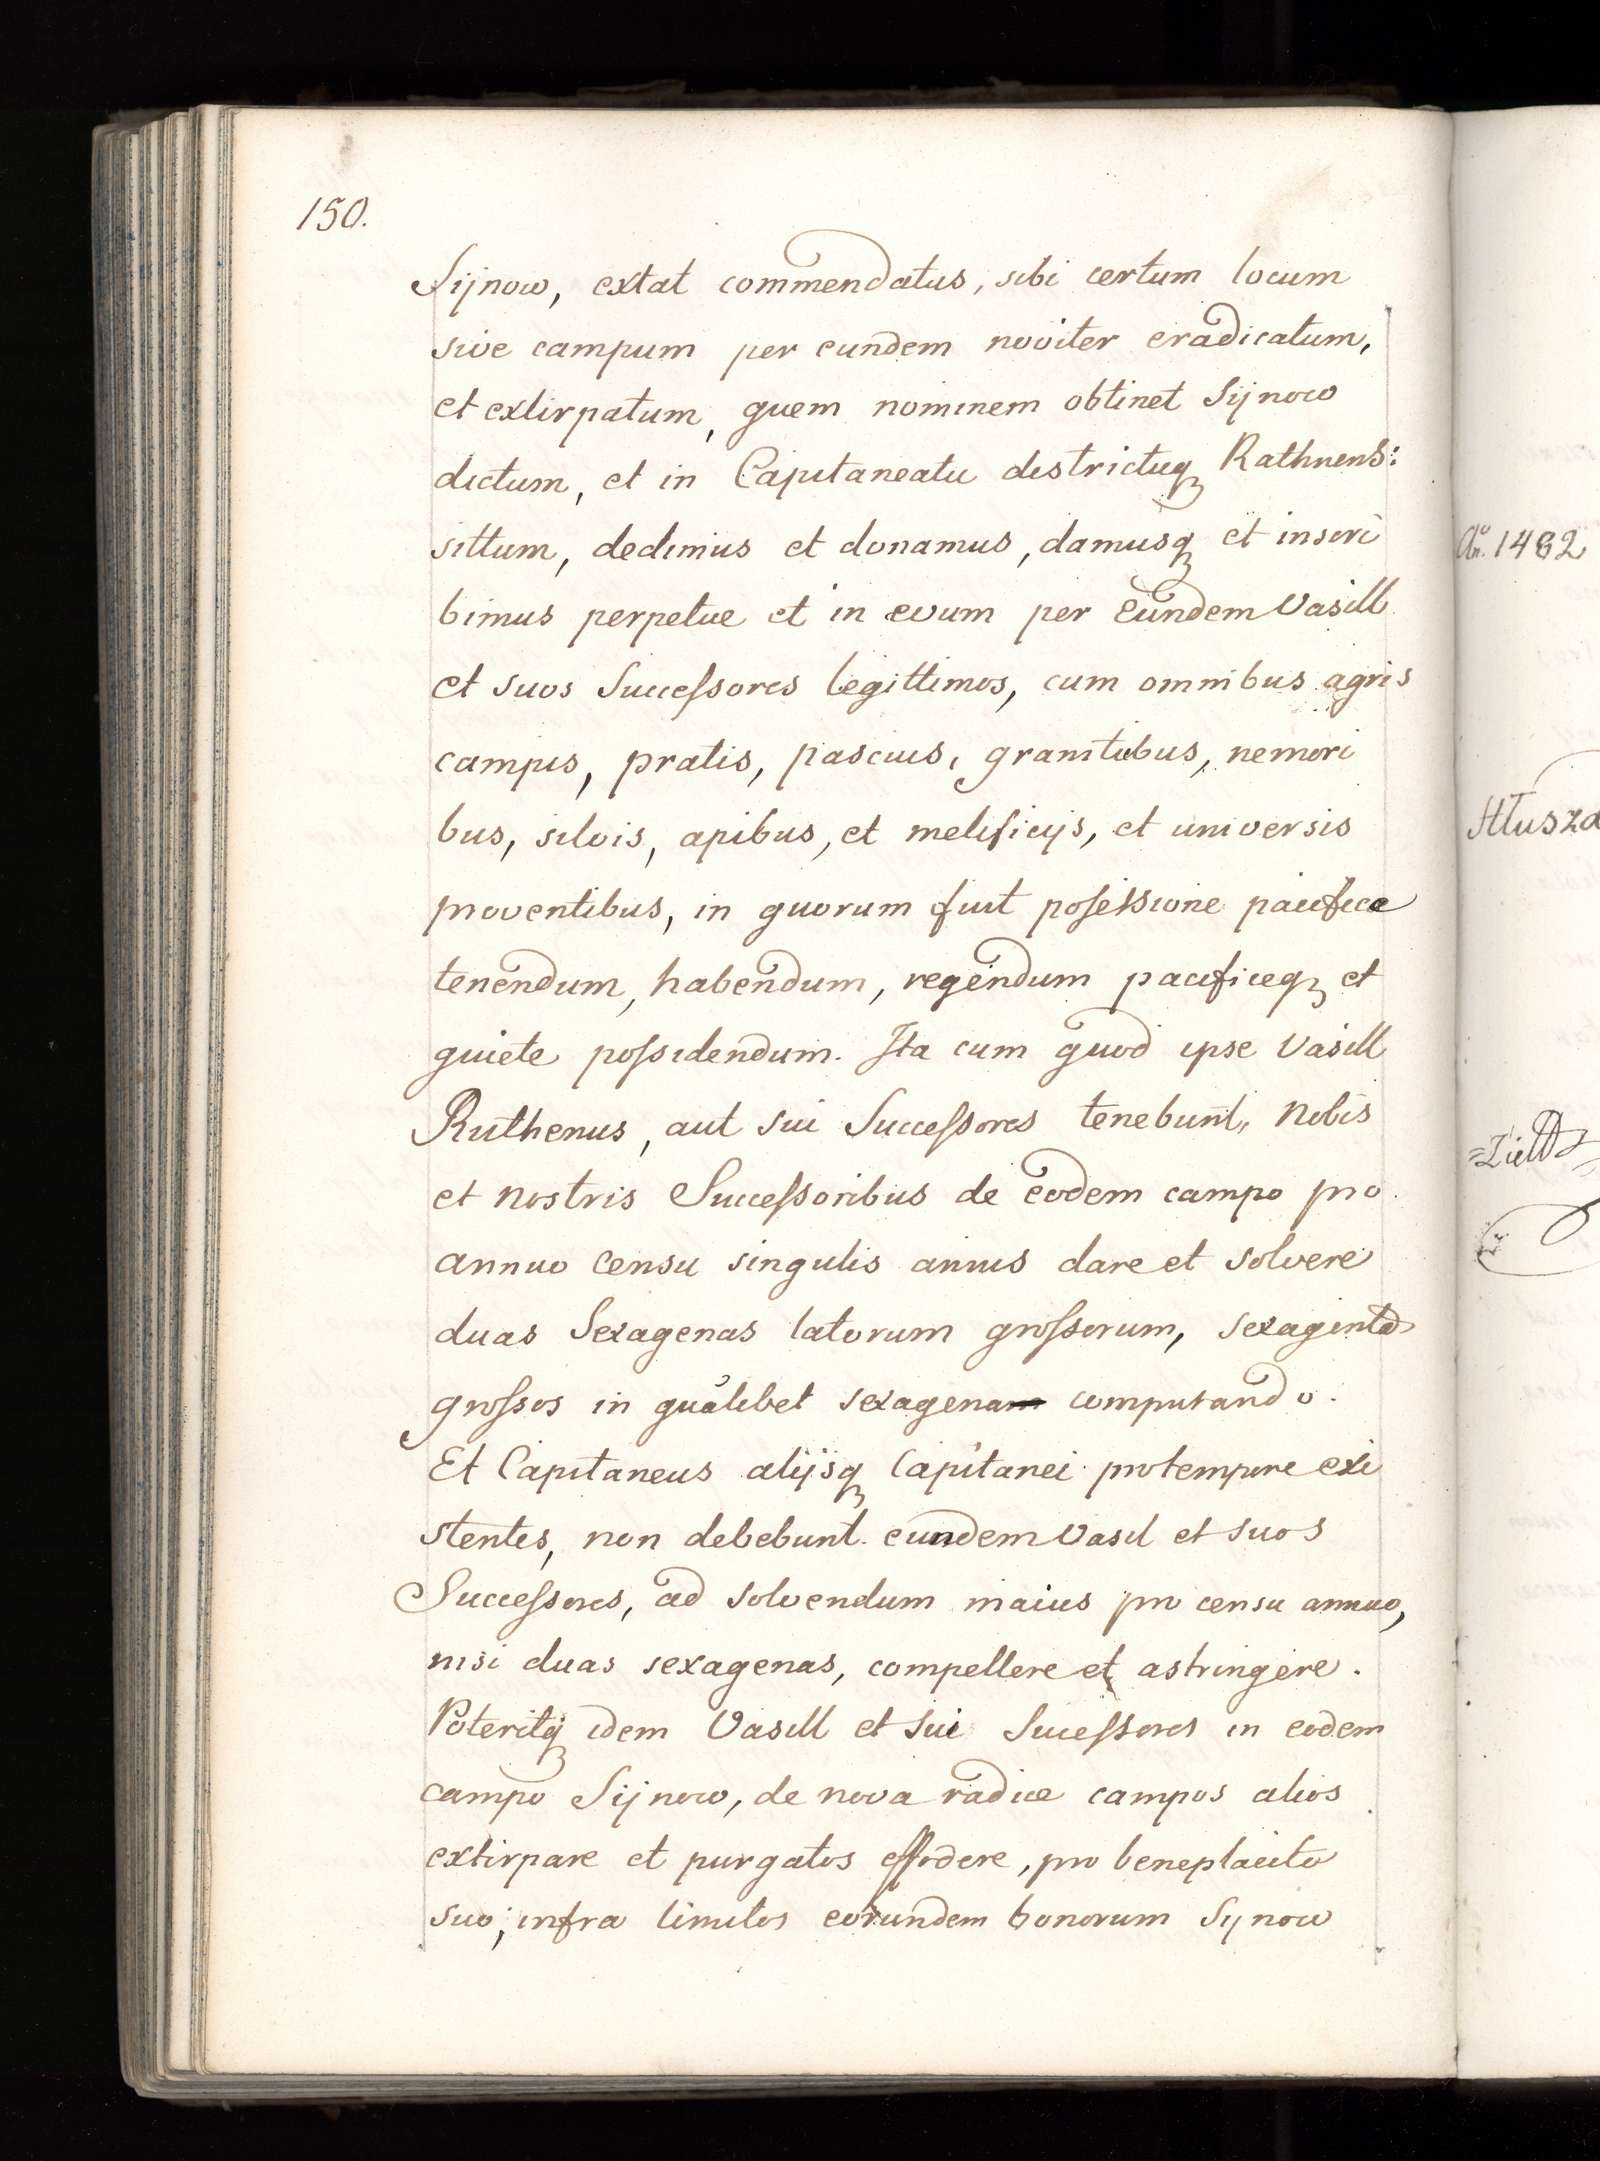 150.
Sijnow, extat commendatus, sibi certum locum
sive campum per eundem noviter eradicatum,
et extirpatum, quem nominem obtinet Sijnow
dictum, et in Capitaneatu districtuq Rathnens:
sittum, dedimus et donamus, damusq et inscri
bimus perpetue et in evum per eundem Vasill
et suos Successores legittimos, cum omnibus agris
campis, pratis, pascuis, granitiebus, nemori
bus, silvis, apibus, et melificijs, et universis
proventibus, in quorum fuit posessione pacifice
tenendum, habendum, regendum pacificeq et
quiete possidendum. Ita cum quod ipse Vasill
Ruthenus, aut sui Successores tenebunt, Nobis
et nostris Successoribus de eodem campo pro
annuo censu singulis annis dare et solvere
duas Sexagenas latorum grossorum, sexaginta
grossos in qualibet sexagena computando.
Et Capitaneus alijsq Capitanei protempore exi
stentes, non debebunt eundem Vasil et suos
Successores, ad solvendum maius pro censu annuo,
nisi duas sexagenas, compellere et astringere.
Poteritq idem Vasill et sui Sucessores in eodem
campo Sijnow, de nova radice campos alios
extirpare et purgatos effodere, pro beneplacito
suo; infra limites eorundem bonorum Sijnow
Ao. 1482